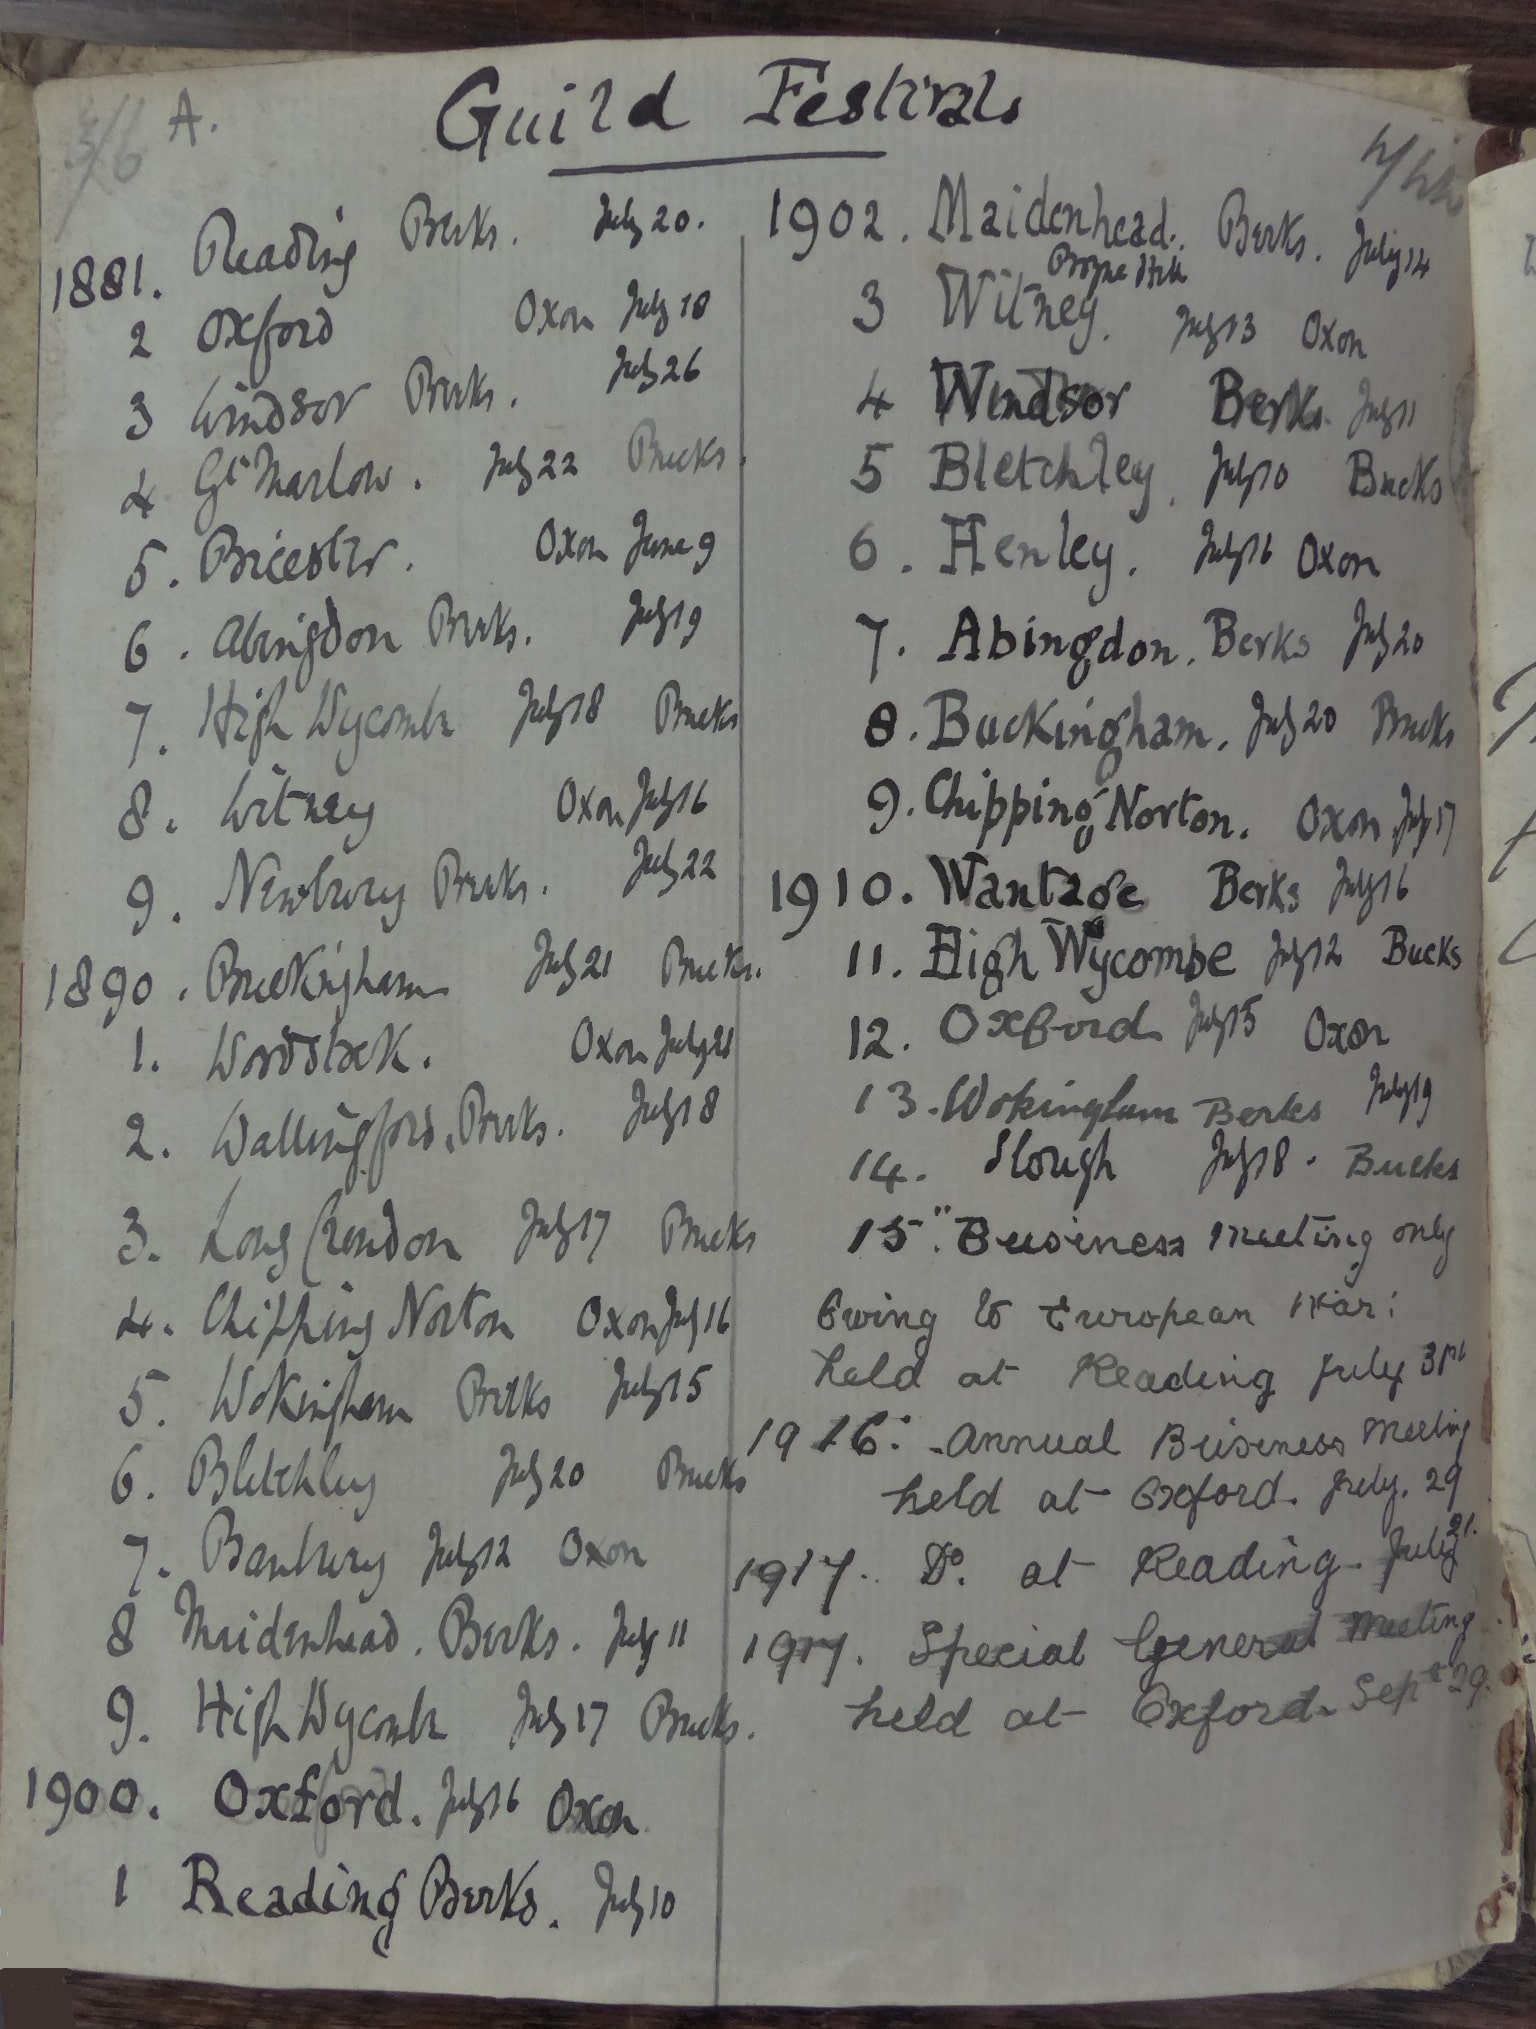 3/6 A.
Guild Festivals
1881. Reading Berks. July 20.
2 Oxford Oxon July 18
3 Windsor Berks. July 26
4 Gt Marlow. July 22 Bucks.
5. Bicester. Oxon June 9
6. Abingdon Berks. July 19
7. High Wycombe July 18 Bucks
8. Witney Oxon July 16
9. Newbury Berks. July 22
1890. Buckingham July 21 Bucks.
1. Woodstock. Oxon July 21
2. Wallingford. Berks. July 18
3. Long Crendon July 17 Bucks
4. Chipping Norton Oxon July 16
5. Wokingham Berks July 15
6. Bletchley July 20 Bucks
7. Banbury July 12 Oxon
8 Maidenhead. Berks. July 11
9. High Wycombe July 17 Bucks.
1900. Oxford. July 16 Oxon
1 Reading Berks. July 10
1902. Maidenhead. Berks. July 14
3 Witney. July 13 Oxon
4 Windsor Berks. July 11
5 Bletchley. July 10 Bucks
6. Henley. July 16 Oxon
7. Abingdon. Berks July 20
8. Buckingham. July 20 Bucks
9. Chipping Norton. Oxon. July 17
1910. Wantage Berks July 16
11. High Wycombe July 12 Bucks
12. Oxford July 15 Oxon
13. Wokingham Berks July 19
14. Slough July 18. Bucks
15". Business meeting only
Owing to European War:
held at Reading July 31st
1916: Annual Business Meeting
held at Oxford. July. 29
1917. Do. at Reading. July 21.
1917. Special General Meeting
held at Oxford. Sept 29.